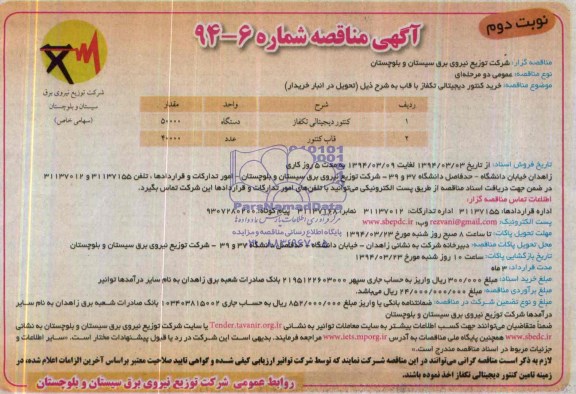 نوبت دوم
آگهی مناقصه شماره ۶-۹۴
شرکت توزیع نیروی برق
سیستان و بلوچستان
(سهامی خاص)
مناقصه گزار: شرکت توزیع نیروی برق سیستان و بلوچستان
نوع مناقصه: عمومی دو مرحله‌ای
موضوع مناقصه: خرید کنتور دیجیتالی تکفاز با قاب به شرح ذیل (تحویل در انبار خریدار)
ردیف شرح واحد مقدار
۱ کنتور دیجیتالی تکفاز دستگاه ۵۰۰۰۰
۲ قاب کنتور عدد ۴۰۰۰۰
تاریخ فروش اسناد: از تاریخ ۱۳۹۴/۰۳/۰۳ لغایت ۱۳۹۴/۰۳/۰۹ به مدت ۵ روز کاری
زاهدان خیابان دانشگاه - حدفاصل دانشگاه ۳۷ و ۳۹ - شرکت توزیع نیروی برق سیستان و بلوچستان - امور تدارکات و قراردادها، تلفن ۳۱۱۳۷۱۵۵ و ۳۱۱۳۷۰۱۲
در ضمن جهت دریافت اسناد مناقصه از طریق پست الکترونیکی می‌توانید با تلفن‌های امور تدارکات و قراردادها این شرکت تماس بگیرد.
اطلاعات تماس مناقصه گزار:
اداره قراردادها: ۳۱۱۳۷۱۵۵ اداره تدارکات: ۳۱۱۳۷۰۱۲ نمابر: ۳۱۱۳۷۱۲۸
پست الکترونیک: rezvani@gmail.com وب: www.sbepdc.ir
مهلت تحویل پاکات: تا ساعت ۸ صبح روز شنبه مورخ ۱۳۹۴/۰۳/۲۳
محل تحویل پاکات مناقصه: دبیرخانه شرکت به نشانی زاهدان - خیابان دانشگاه - حدفاصل دانشگاه ۳۷ و ۳۹ - شرکت توزیع نیروی برق سیستان و بلوچستان
تاریخ بازگشایی پاکات: ساعت ۱۰ روز شنبه مورخ ۱۳۹۴/۰۳/۲۳
مدت قرارداد: ۳ ماه
مبلغ خرید اسناد: مبلغ ۳۰۰/۰۰۰ ریال واریز به حساب جاری سپهر ۰۲۱۵۱۲۲۶۰۳۰۰۰ بانک صادرات شعبه برق زاهدان به نام سایر درآمدها توانیر
مبلغ برآوردی مناقصه: مبلغ ۲۴/۰۰۰/۰۰۰/۰۰۰ ریال می‌باشد.
مبلغ و نوع تضمین شرکت در مناقصه: ضمانتنامه بانکی یا واریز مبلغ ۸۵۲/۰۰۰/۰۰۰ ریال به حساب جاری ۰۱۰۳۴۰۳۸۱۵۰۰۲ بانک صادرات شعبه برق زاهدان به نام سایر
درآمدها شرکت توزیع نیروی برق سیستان و بلوچستان
ضمناً متقاضیان می‌توانند جهت کسب اطلاعات بیشتر به سایت معاملات توانیر به نشانی Tender.tavanir.org.ir یا سایت شرکت توزیع نیروی برق سیستان و بلوچستان به نشانی
www.sbepdc.ir همچنین پایگاه ملی مناقصات به آدرس www.iets.mporg.ir مراجعه فرمایند. بدیهی است این شرکت در رد یا قبول پیشنهادات مختار است. «سایر اطلاعات و
جزئیات مربوط در اسناد مناقصه مندرج است.»
لازم به ذکر است مناقصه گرانی می‌توانند در این مناقصه شرکت نمایند که توسط شرکت توانیر ارزیابی کیفی شده و گواهی تایید صلاحیت معتبر براساس آخرین الزامات اعلام شده، در
زمینه تامین کنتور دیجیتالی تکفاز اخذ نموده باشند.
روابط عمومی شرکت توزیع نیروی برق سیستان و بلوچستان
ParsNamadData
پایگاه اطلاع رسانی مناقصه و مزایده